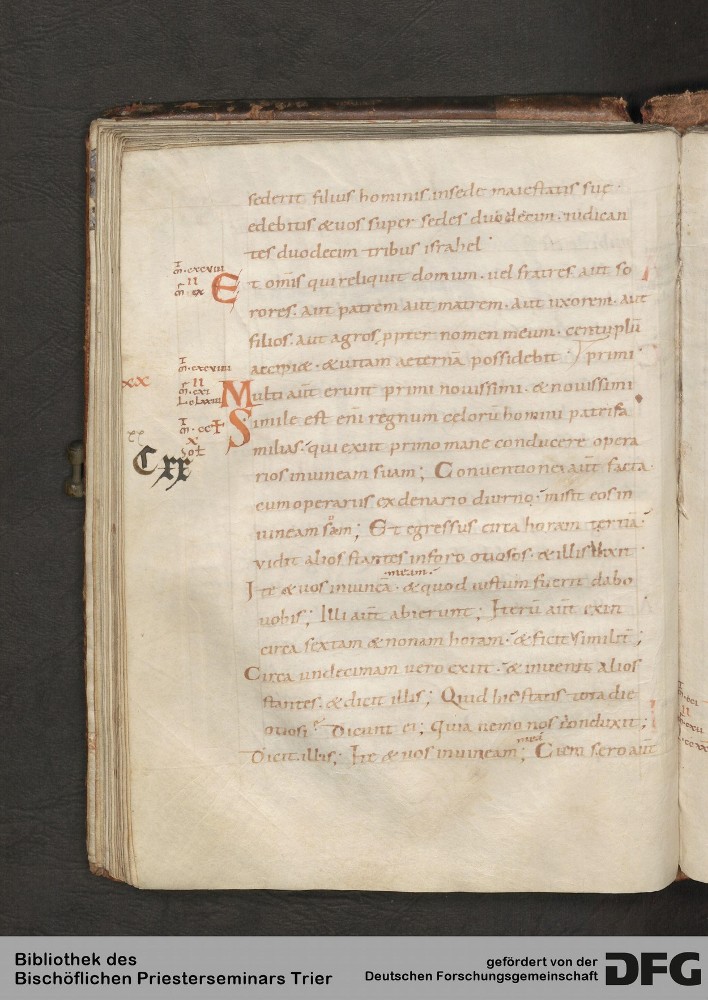 sederit filius hominis insede maiestatis suę·
edebitis &uos super sedes duodecim· iudican
tes duodecim tribus israhel·
Et omīs qui reliquit domum· uel fratres aut so
rores· aut patrem aut matrem· aut uxorem· aut
filios· aut agros ppter nomen meum· centuplū
accipi&· &uitam aeternā possidebit· primi·
XX Multi aūt erunt primi nouissimi· & nouissimi
Simile est enī regnum celorū homini patrifa
milias· qui exiit primo mane conducere opera
Cxx
rios inuineam suam; Conuentione aūt facta·
cumoperariis ex denario diurno· misit eos in
uineam suam; Et egressus circa horam tertiā·
uidit alios stantes inforo otiosos· &illis dixit·
·meam·
Ite &uos inuineā· &quod iustum fuerit dabo
uobis; Illi aūt abierunt; Iterū aūt exiit
circa sextam &nonam horam· &fecit similit;
Circa undecimam uero exiit· &inuenit alios
stantes· &dicit illis; Quid hic statis tota die
otiosi Dicunt ei; Quia nemo nos conduxit;
meā
Dicit illis; Ite &uos inuineam; Cum sero aūt
Bibliothek des
Bischöflichen Priesterseminars Trier
gefördert von der
Deutschen Forschungsgemeinschaft
DFG